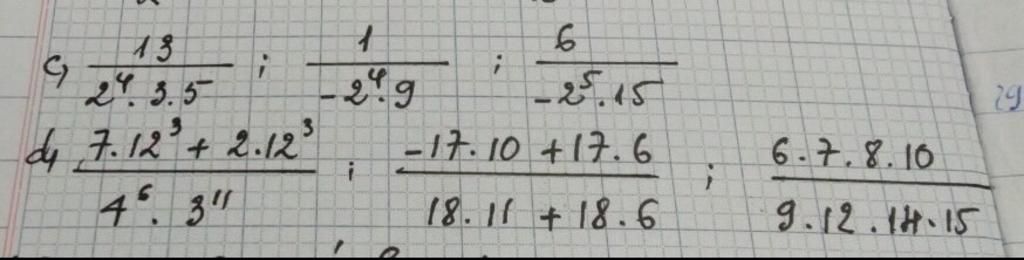 c, 13/(2⁴.3.5) ; 1/(-2⁴.9) ; 6/(-2⁵.15)
d, (7.12³ + 2.12³)/(4⁶.3¹¹) ; (-17.10 + 17.6)/(18.11 + 18.6) ; (6.7.8.10)/(9.12.14.15)